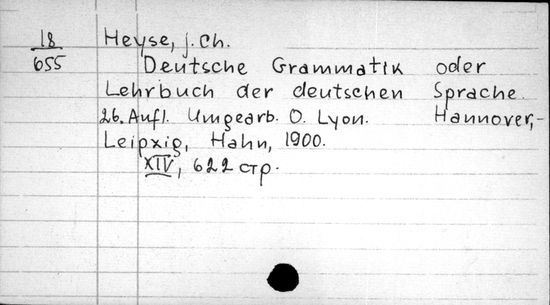 18
655
Heyse, J. Ch.
Deutsche Grammatik oder
Lehrbuch der deutschen Sprache.
26. Aufl. Umgearb. O. Lyon. Hannover,-
Leipzig, Hahn, 1900.
XIV, 622 стр.